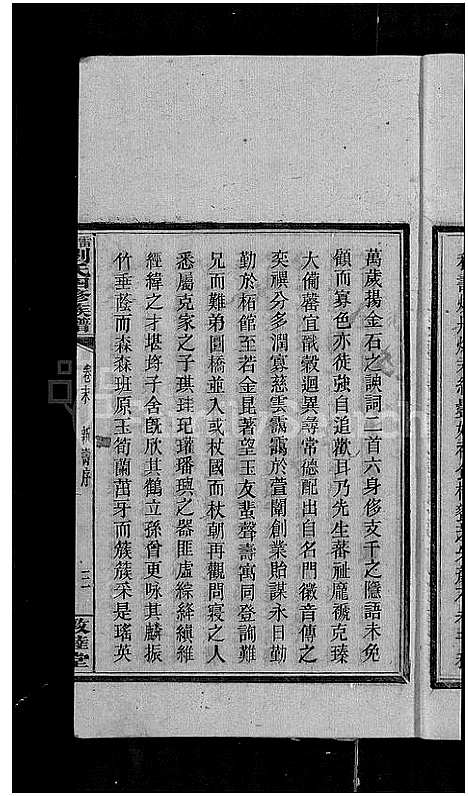 萬歲揚金石之諛詞二首六身侈支干之隱語未免
顧而寡色亦徒強自追歡耳乃先生蕃祉龐褫克臻
大備蕃宜戩穀迥異尋常德配出自名門徽音傳之
奕禩分多潤寡慈雲靄靄於萱闈創業貽謀永日勤
勤於栢館至若金昆著望玉友蜚聲壽寓同登詢難
兄而難弟圓橋並入或杖國而杖朝再觀問寢之人
悉屬克家之子琪珪玘瓘璠璵之器匪虛綜絳縝維
經緯之才堪埓子舍旣欣其鶴立孫曾更咏其麟振
竹垂蔭而森森班原玉筍蘭茁牙而簇簇采是瑤英
劉氏四修族譜
卷末
壽序
三
敦睦堂